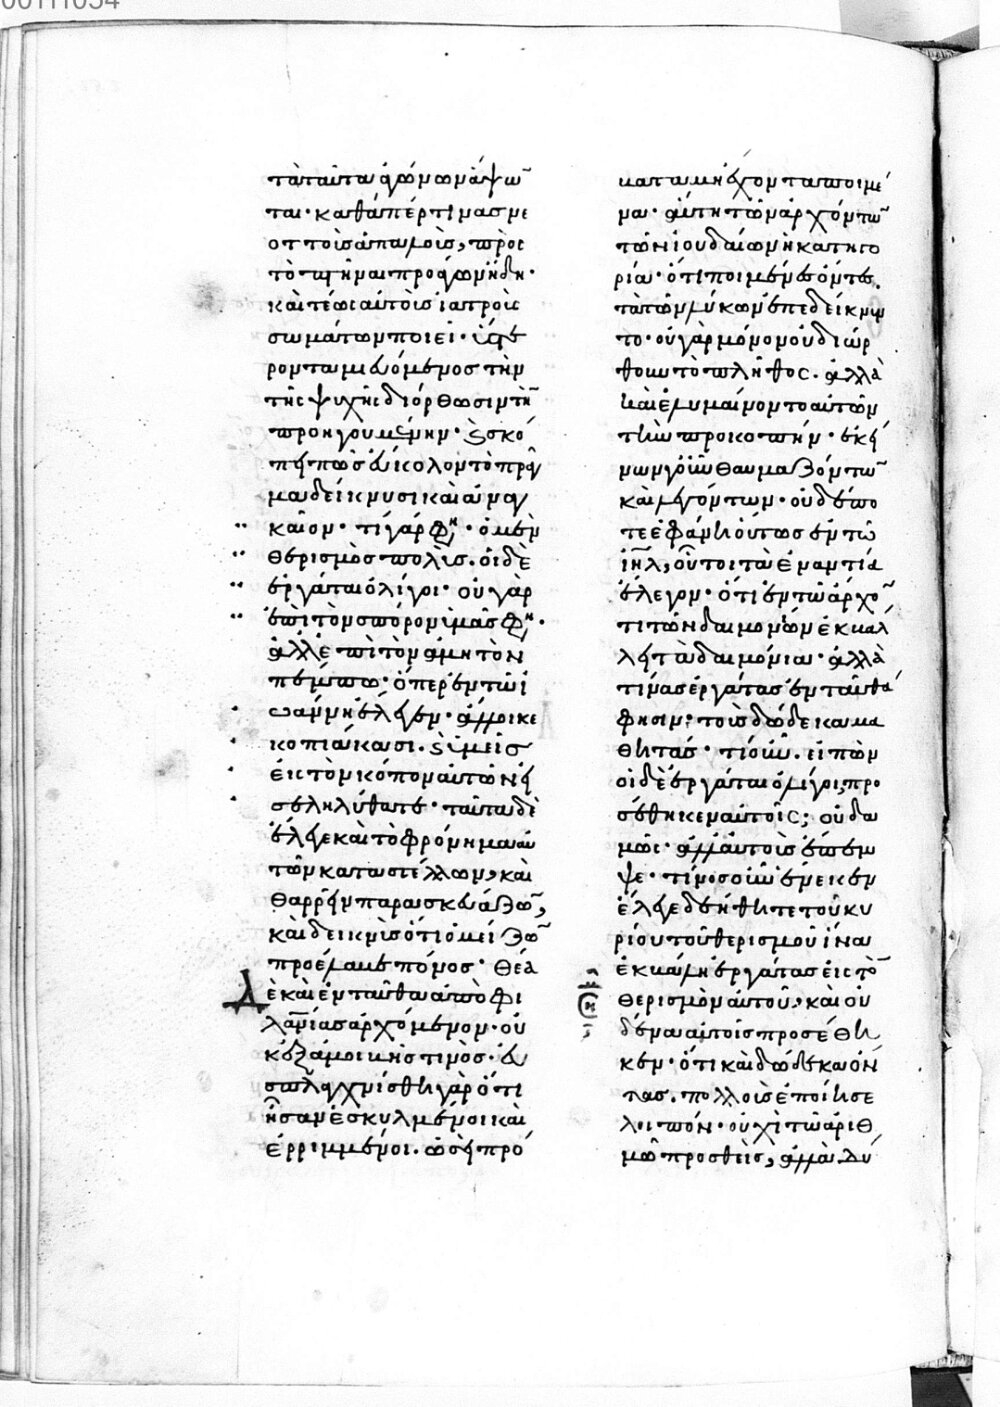 00111034
τὰ ταῦτα ἀγώνων ἅψων
ται· καθάπέρ τινας νε
οττοὺς ἁπαλοὺς, πρὸς
τὸ πτῆναι προάγων ἤδη·
καὶ τέως αὐτοὺς ἰατροὺς
σωμάτων ποιεῖ· ὕστε
ρον ταμιευόμενος τὴν
τῆς ψυχῆς διόρθωσιν τὴν
προηγουμένην· καὶ σκό
πει πῶς εὔκολον τὸ πρᾶγ
μα δείκνυσι καὶ ἀναγ
καῖον· τί γάρ φησιν· ὁ μὲν
θερισμὸς πολὺς. οἱ δὲ
ἐργάται ὀλίγοι· οὐ γὰρ
ἐπὶ τὸν σπόρον ὑμᾶς φησιν·
ἀλλ' ἐπὶ τὸν ἀμητὸν
πέμπω· ὅπερ ἐν τῶ ἰ
ωάννη ἔλεγεν· ἄλλοι κε
κοπιάκασι. καὶ ὑμεῖς
εἰς τὸν κόπον αὐτῶν εἰ
σεληλύθατε· ταῦτα δὲ
ἔλεγε καὶ τὸ φρόνημα αὐ
τῶν καταστέλλων, καὶ
θαρρεῖν παρασκευάζων,
καὶ δεικνὺς ὅτι ὁ μείζων
προέλαβε πόνος· θέα
δὲ καὶ ἐνταῦθα ἀπὸ φι
λανθρωπίας ἀρχόμενον· οὐ
κ ἀμοιβῆς τινὸς· ἐ
σπλαγχνίσθη γὰρ ὅτι
ἦσαν ἐσκυλμένοι καὶ
ἐρριμμένοι. ὡσεὶ πρό
βατα μὴ ἔχοντα ποιμέ
να· αὕτη τῶν ἀρχόντων
τῶν ἰουδαίων ἡ κατηγο
ρία· ὅτι ποιμένες ὄντες.
τὰ τῶν λύκων ἐπεδείκνυν
το· οὐ γὰρ μόνον οὐ διώρ
θουν τὸ πλῆθος. ἀλλὰ
καὶ ἐλυμαίνοντο αὐτῶν
τὴν προκοπήν· ἐκεί
νων γοῦν θαυμαζόντων
καὶ λεγόντων· οὐδέπο
τε ἐφάνη οὕτως ἐν τῶ
ἰσραήλ, οὗτοι τὰ ἐναντία
ἔλεγον· ὅτι ἐν τῶ ἄρχον
τι τῶν δαιμονίων ἐκβάλ
λει τὰ δαιμόνια· ἀλλὰ
τίνας ἐργάτας ἐνταῦθά
φησιν; τοὺς δώδεκα μα
θητάς· τί οὖν. εἰπὼν
οἱ δὲ ἐργάται ὀλίγοι, προ
σέθηκεν αὐτοῖς; οὐδα
μῶς· ἀλλ' αὐτοὺς ἔπεμ
ψε· τίνος οὖν ἕνεκεν
ἔλεγε δεήθητε τοῦ κυ
ρίου τοῦ θερισμοῦ ἵνα
ἐκβάλη ἐργάτας εἰς τὸν
θερισμὸν αὐτοῦ, καὶ οὐ
δένα αὐτοῖς προσέθη
κεν· ὅτι καὶ δώδεκα ὄν
τας. πολλοὺς ἐποίησε
λοιπόν· οὐχὶ τῶ ἀριθ
μῶ προσθεὶς, ἀλλὰ δύ